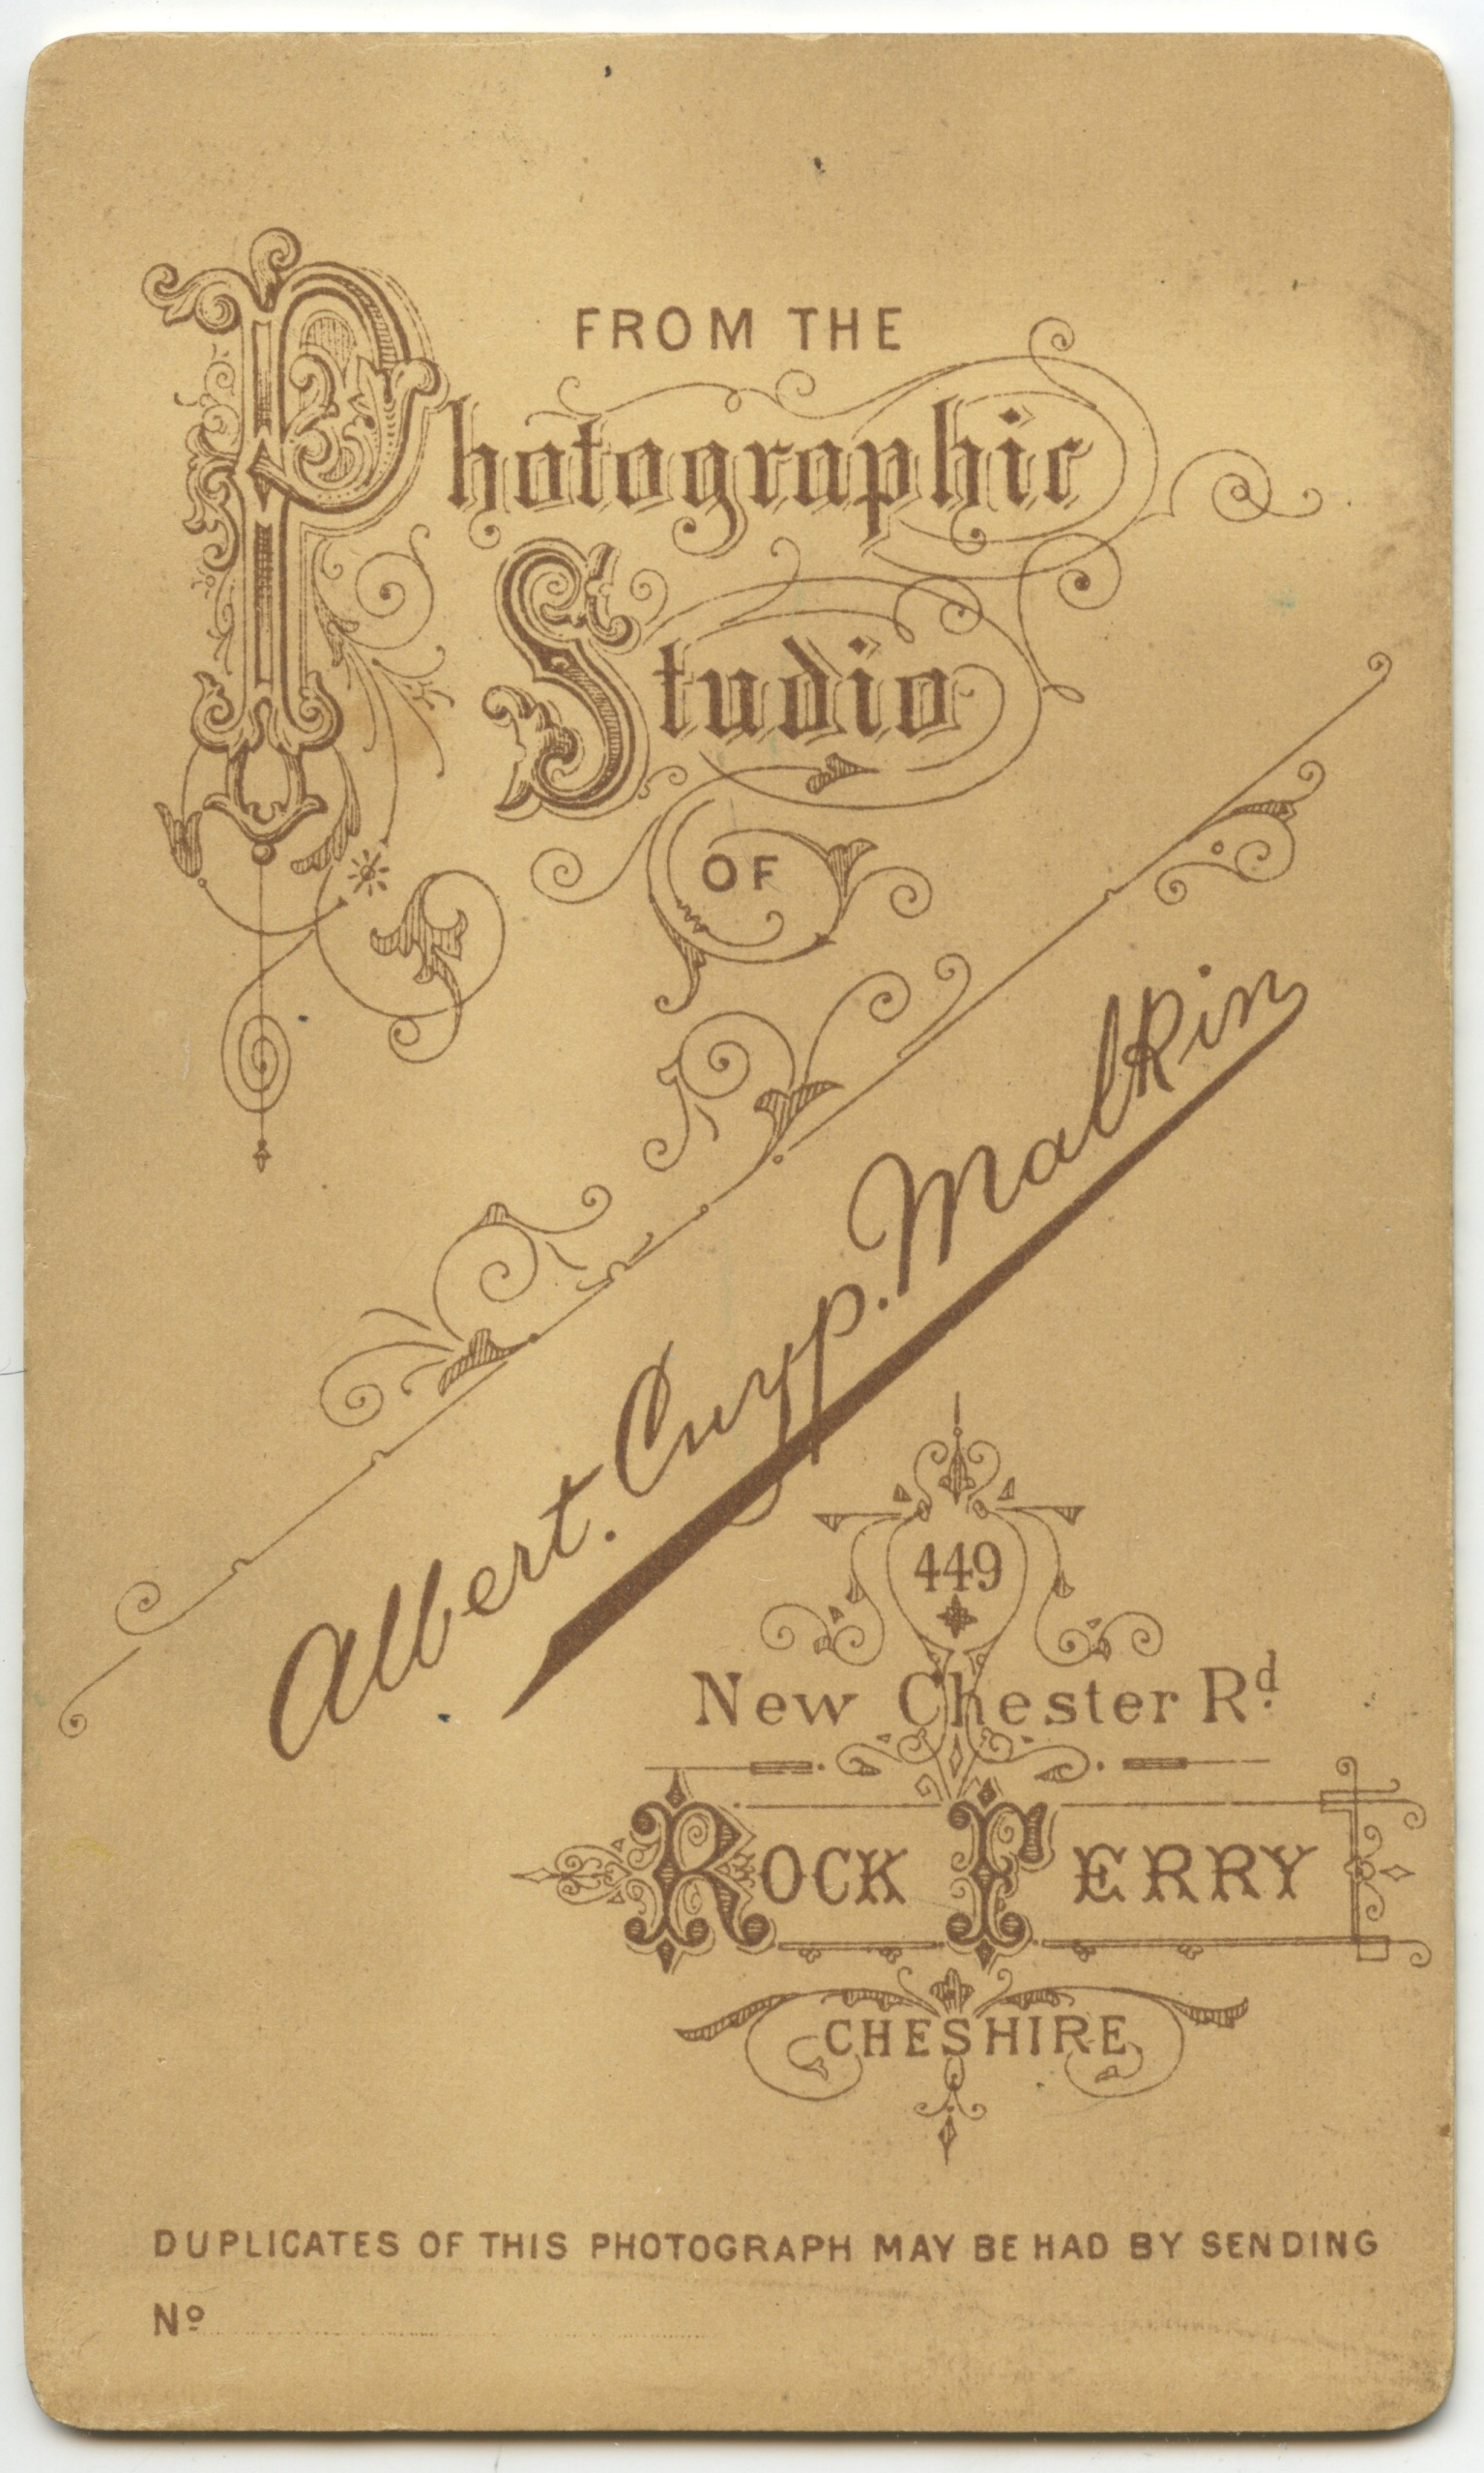 FROM THE
Photographic
Studio
OF
Albert. Cuyp. Malkin
449
New Chester Rd.
ROCK FERRY
CHESHIRE
DUPLICATES OF THIS PHOTOGRAPH MAY BE HAD BY SENDING
Nº